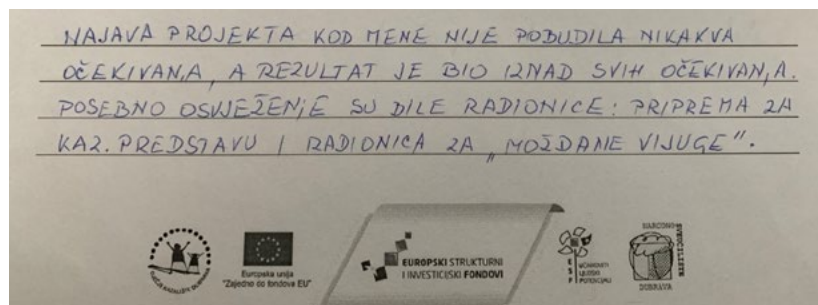 NAJAVA PROJEKTA KOD MENE NIJE POBUDILA NIKAKVA
OČEKIVANJA, A REZULTAT JE BIO IZNAD SVIH OČEKIVANJA.
POSEBNO OSVJEŽENJE SU BILE RADIONICE: PRIPREMA ZA
KAZ. PREDSTAVU I RADIONICA ZA „MOŽDANE VIJUGE”.
Europska unija
"Zajedno do fondova EU"
EUROPSKI STRUKTURNI
I INVESTICIJSKI FONDOVI
ESF
UČINKOVITI
LJUDSKI
POTENCIJALI
NARODNO
SVEUČILIŠTE
DUBRAVA